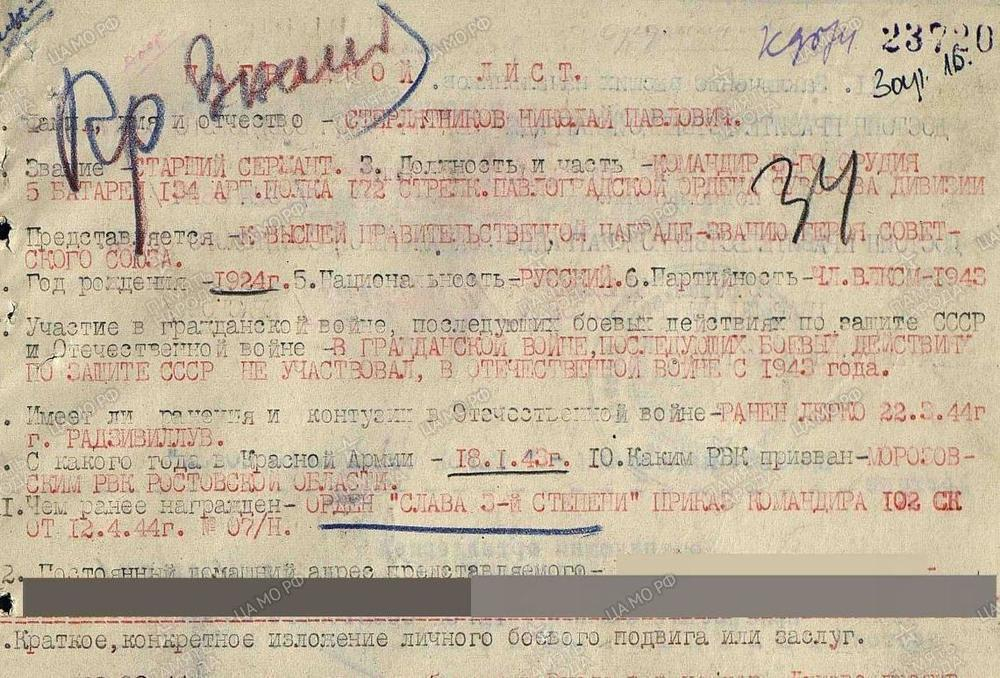 23720
Кр Знамя
НАГРАДНОЙ ЛИСТ.
имя и отчество - СТЕРЛЯТНИКОВ НИКОЛАЙ ПАВЛОВИЧ.
. Звание -СТАРШИЙ СЕРЖАНТ. 3. Должность и часть -КОМАНДИР ОРУДИЯ
5 БАТАРЕИ 134 АРТ.ПОЛКА 172 СТРЕЛК.ПАВЛОГРАДСКОЙ ДИВИЗИИ
34
Представляется -К ВЫСШЕЙ ПРАВИТЕЛЬСТВЕННОЙ НАГРАДЕ-ЗВАНИЮ ГЕРОЯ СОВЕТ-
СКОГО СОЮЗА.
. Год рождения -1924г.5.Национальность-РУССКИЙ.6.Партийность-ЧЛ.ВЛКСМ-1943
. Участие в гражданской войне, последующих боевых действиях по защите СССР
и Отечественной войне -В ГРАЖДАНСКОЙ ВОЙНЕ,ПОСЛЕДУЮЩИХ БОЕВЫХ ДЕЙСТВИЯХ
ПО ЗАЩИТЕ СССР НЕ УЧАСТВОВАЛ, В ОТЕЧЕСТВЕННОЙ ВОЙНЕ С 1943 года.
. Имеет ли ранения и контузии в Отечественной войне-РАНЕН ЛЕГКО 22.3.44г
г. РАДЗИВИЛЛУВ.
. С какого года в Красной Армии - 18.I.43г. IO.Каким РВК призван-МОРОЗОВ-
СКИМ РВК РОСТОВСКОЙ ОБЛАСТИ.
I.Чем ранее награжден- ОРДЕН "СЛАВА 3-й СТЕПЕНИ" ПРИКАЗ КОМАНДИРА 102 СК
ОТ 12.4.44г. № 07/Н.
2. Постоянный домашний адрес представляемого-
.Краткое,конкретное изложение личного боевого подвига или заслуг.